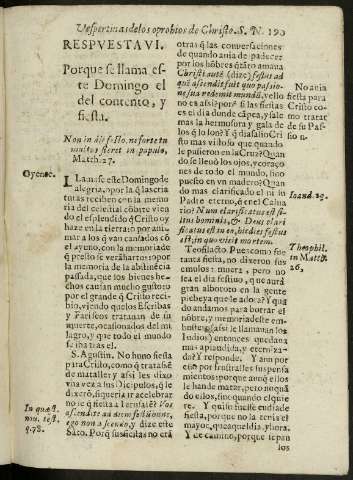 Vespertinas de los oprobios de Christo. S. N. 190
RESPVESTA VI.
Porque se llama es-
te Domingo el
del contento, y
fiesta.
Non in die festo, ne forte tu
multus fieret in populo,
Match. 27.
Oyense.
LLamase este Domingo de
alegria, por la q̃ las cria
turas reciben con la memo
ria del celestial cõbite vien
do el esplendido q̃ Cristo oy
haze en la tierra: o por ani-
mar a los q̃ van cansados cõ
el ayuno, con la memoria de
q̃ presto se verã hartos: o por
la memoria de la abstinẽcia
passada, que los bienes he-
chos causan mucho gusto:
por el grande q̃ Cristo reci-
bio, viendo que los Escribas
y Fariseos trataran de su
muerte, ocasionados del mi
lagro, y que todo el mundo
se iba tras el.
S. Agustin. No huno fiesta
para Cristo, como q̃ tratasẽ
de matalle: y assi les dixo
vna vez a sus Dicipulos, q̃ le
dixerõ, si queria ir a celebrar
no se q̃ fiesta a Ierusalẽ? Vos
ascendite ad diem festũ hunc,
ego non ascendo, y dize este
Sãto. Porq̃ sus fiestas no erã
In quæst.
nou. test.
q. 78.
otras q̃ las conuersaciones
de quando auia de padecer
por los hõbres q̃ tãto amaua
Christi autẽ (dize) festus ad
quẽ ascendit fuit quo passio-
ne sua redemit mundũ, y ello
no es assi? porq̃ si las fiestas
es el dia donde cãpea, y sale
mas la hermosura y gala de
los q̃ lo son? Y q̃ dia salio Cri
sto mas vistoso que quando
le pusieron en la Cruz? Quan
do se lleuò los ojos, y coraço
nes de todo el mundo, sino
puesto en vn madero? Quan
do mas clarificado ni si su
Padre eterno, q̃ en el Calua
rio? Num clarificatus est fi-
lius hominis, & Deus clari
ficatus est in eo, hic dies festus
est, in quo vicit mortem.
No auia
fiesta para
Cristo co-
mo tratar
de su Pas-
sio n.
Ioand. 13.
Teofilacto. Pues como fue
tanta fiesta, no dixeron sus
emulos: muera, pero no
sea el dia festiuo, que aurà
gran alboroto en la gente
plebeya que le adora? Y quã
do andamos para borrar el
nõbre, y memoria deste em-
bustero (assi le llamauan los
Iudios) entonces quedara
mas aplaudida, y eterniza-
da? Y responde. Y aun por
esso fue permission de sus pen
samientos: porque aunq̃ ellos
le han de matar, pero no quã
do ellos, sino quando el quie
re. Y quiso fuesse en dia de
fiesta, porque no la seria el
mayor, que aquel dia, q̃ otro.
Y de camino, porque sepan
los
Theophil.
in Matth.
26.